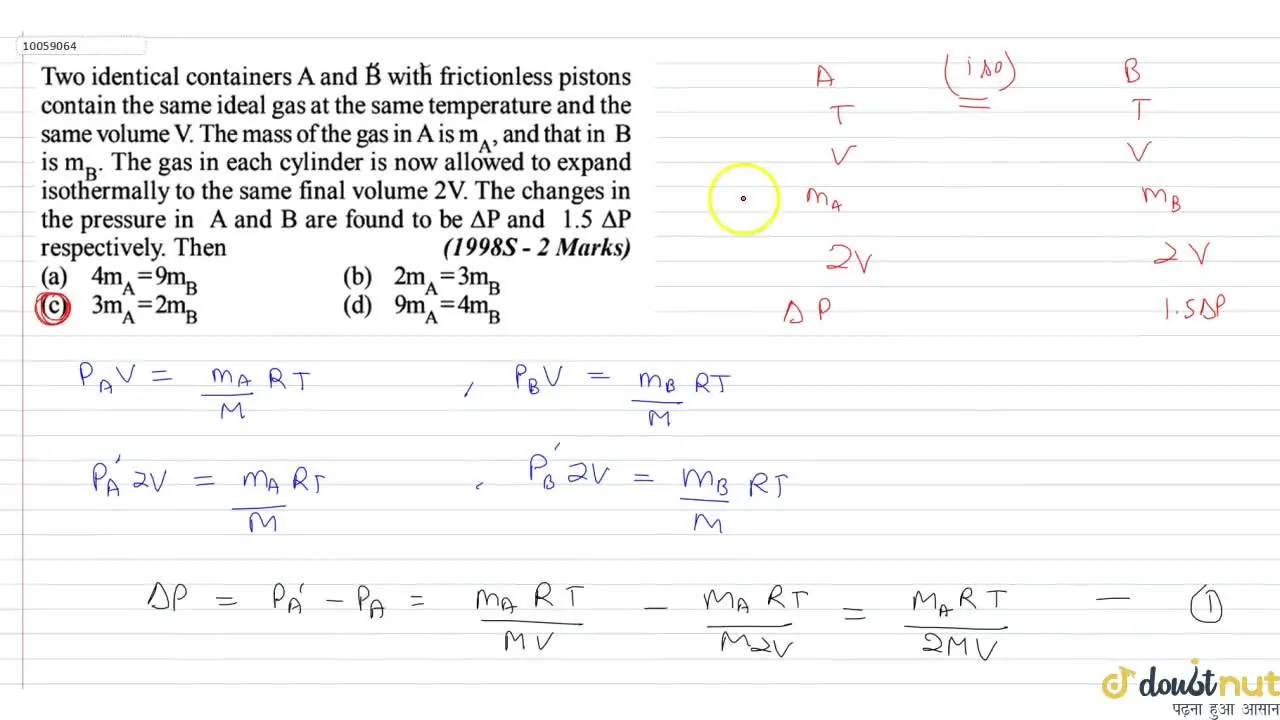 10059064
Two identical containers A and B with frictionless pistons
contain the same ideal gas at the same temperature and the
same volume V. The mass of the gas in A is m_A, and that in B
is m_B. The gas in each cylinder is now allowed to expand
isothermally to the same final volume 2V. The changes in
the pressure in A and B are found to be ΔP and 1.5 ΔP
respectively. Then (1998S - 2 Marks)
(a) 4m_A=9m_B (b) 2m_A=3m_B
(c) 3m_A=2m_B (d) 9m_A=4m_B
A (iso) B
T T
V V
m_A m_B
2V 2V
ΔP 1.5ΔP
P_A V = m_A/M RT , P_B V = m_B/M RT
P_A' 2V = m_A/M RT , P_B' 2V = m_B/M RT
ΔP = P_A' - P_A = m_A RT/MV - m_A RT/M2V = m_A RT/2MV — ①
doubtnut
पढ़ना हुआ आसान